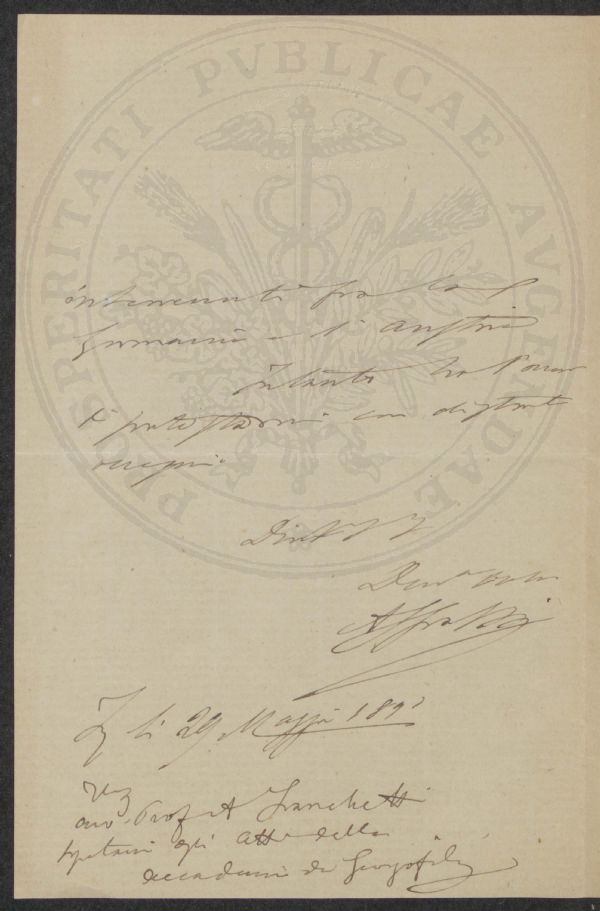 PROSPERITATI PVBLICAE AVGENDAE
intervenuti fra la
Germania e l'Austria
Intanto ho l'onor
di protestarmi con distinti
ossequi
A
Li 29 Maggio 1892
avv. Prof A Franchetti
Segretario degli Atti della
accademia dei Georgofili